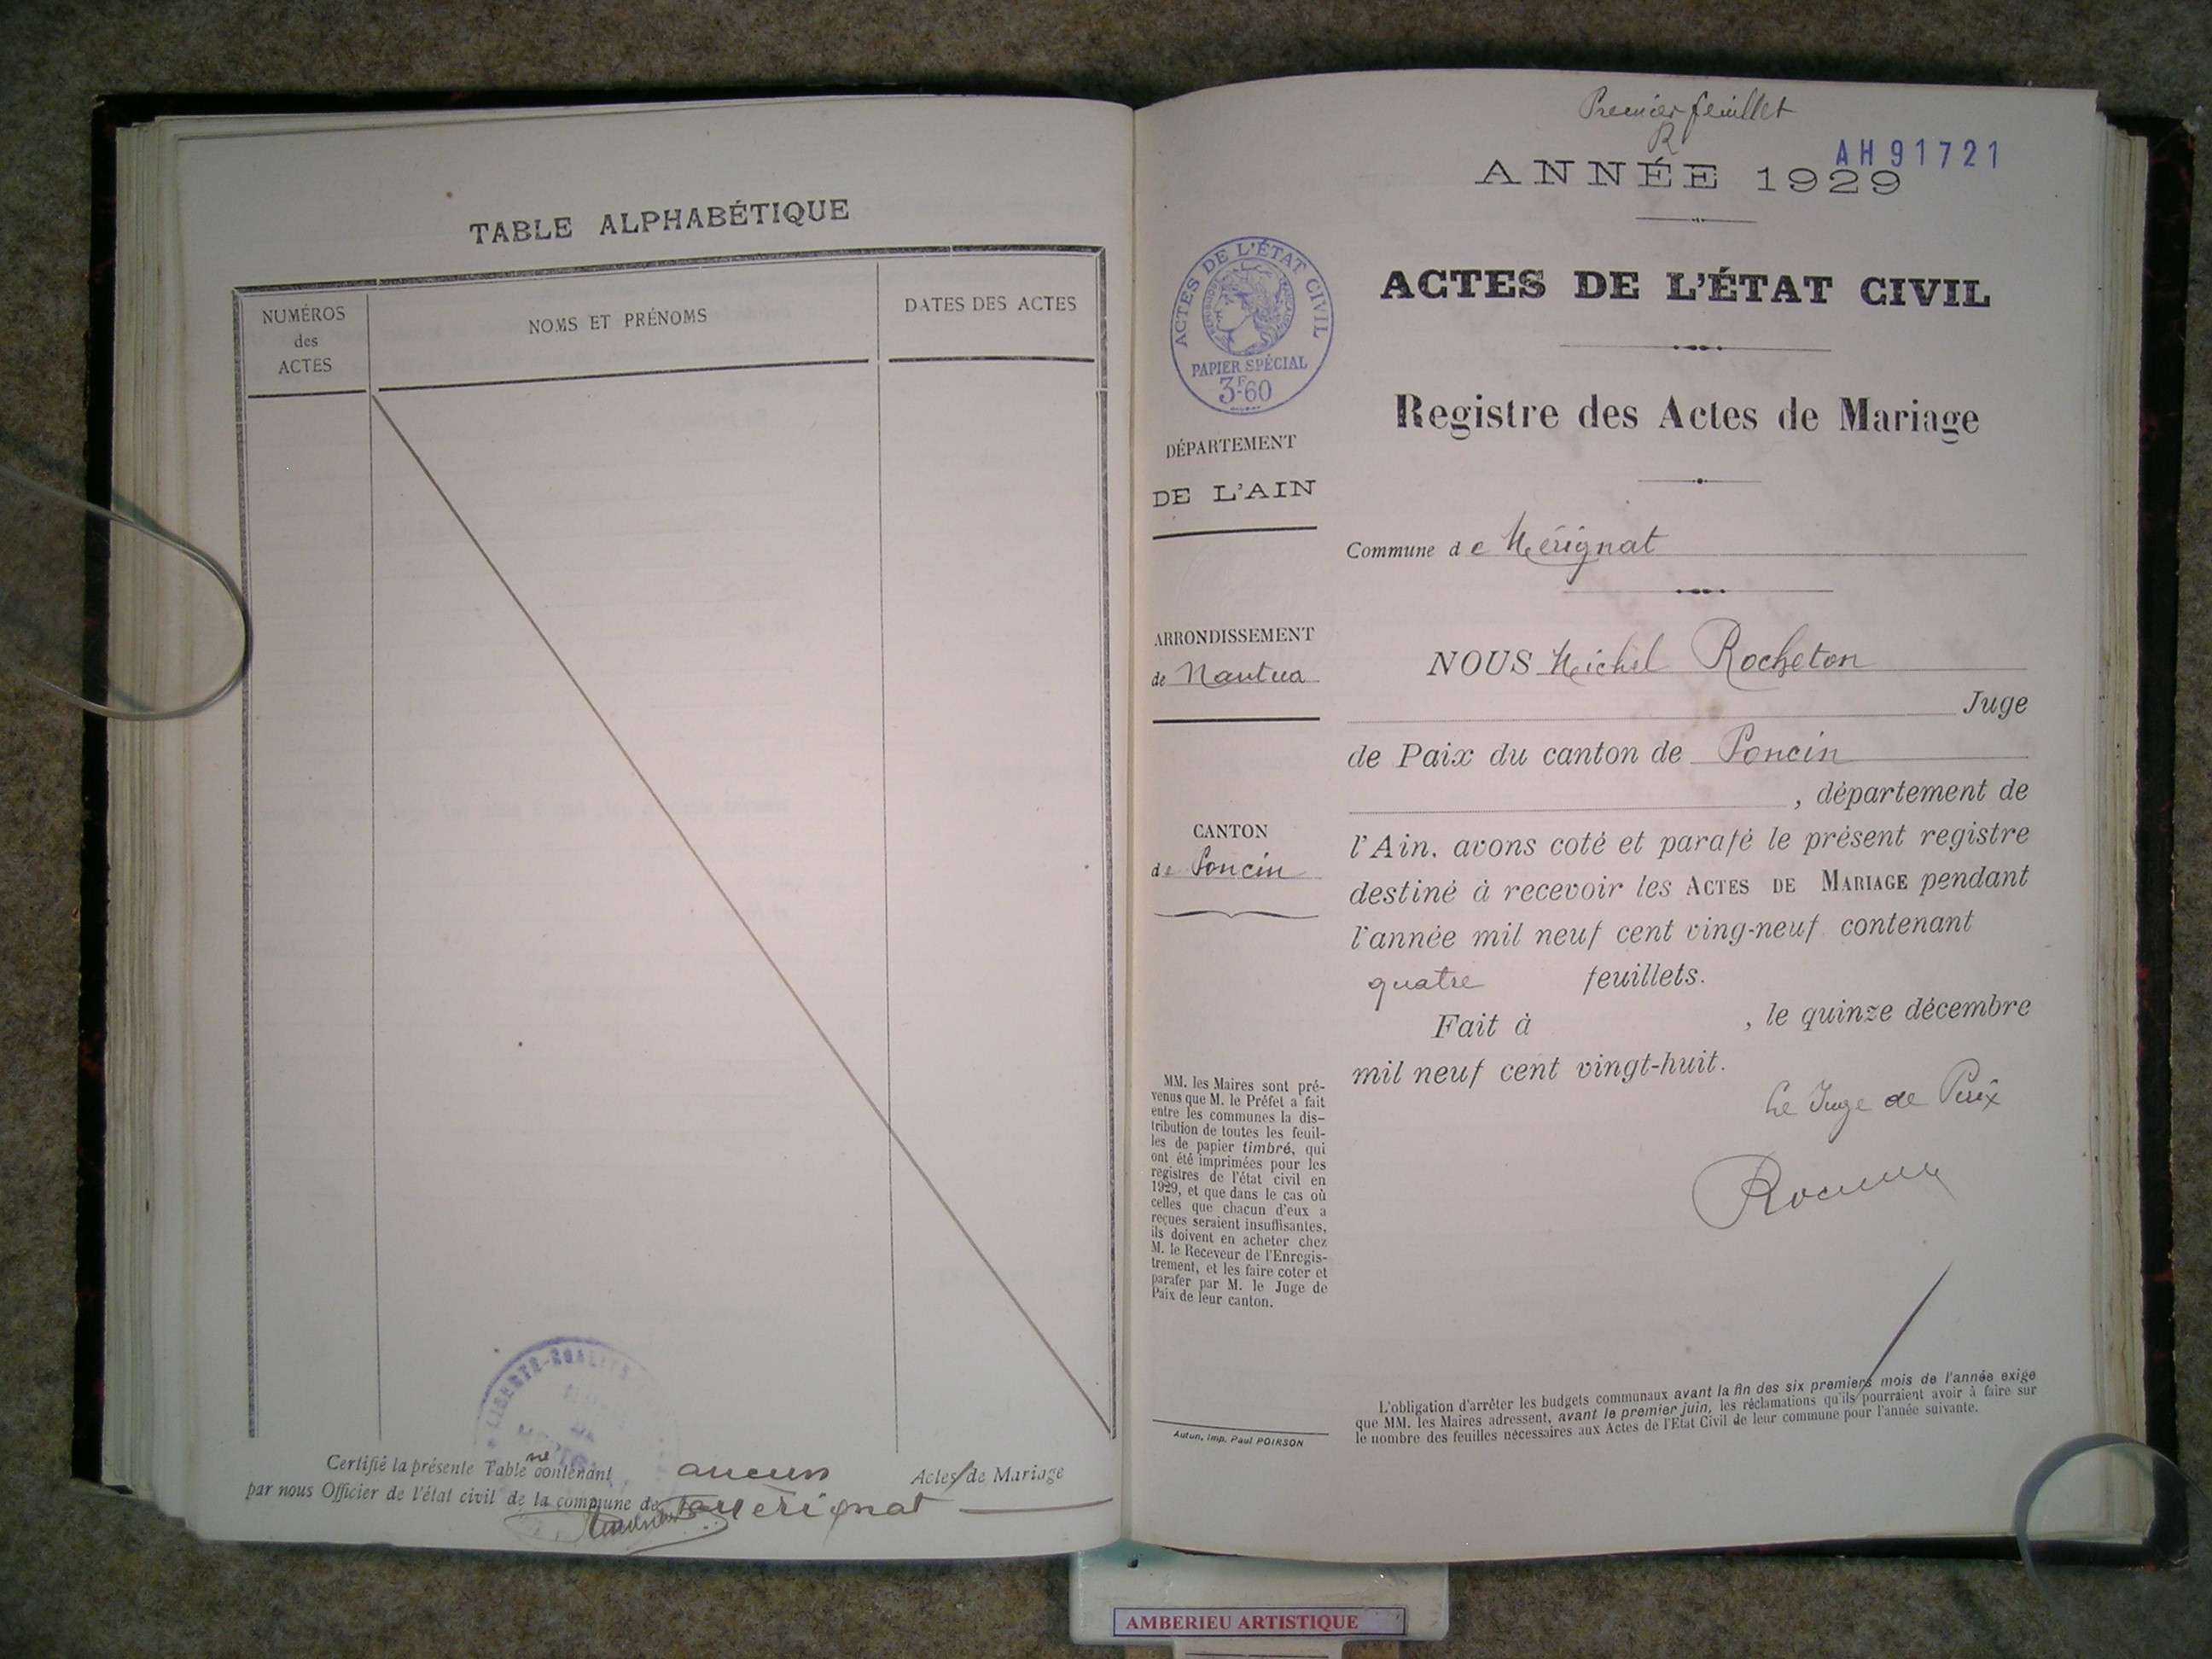 TABLE ALPHABÉTIQUE
NUMÉROS
des
ACTES
NOMS ET PRÉNOMS
DATES DES ACTES
LIBERTÉ-ÉGALITÉ
Certifié la présente Table ne contenant aucun Actes de Mariage
par nous Officier de l'état civil de la commune de Mérignat
Premier feuillet
R
AH91721
ANNÉE 1929
ACTES DE L'ÉTAT CIVIL
PAPIER SPÉCIAL
3F60
ACTES DE L'ÉTAT CIVIL
Registre des Actes de Mariage
DÉPARTEMENT
DE L'AIN
Commune de Mérignat
ARRONDISSEMENT
de Nantua
CANTON
de Poncin
NOUS Michel Rocheton
Juge
de Paix du canton de Poncin
, département de
l'Ain, avons coté et parafé le présent registre
destiné à recevoir les ACTES DE MARIAGE pendant
l'année mil neuf cent ving-neuf contenant
quatre feuillets.
Fait à , le quinze décembre
mil neuf cent vingt-huit.
Le Juge de Paix
MM. les Maires sont pré-
venus que M. le Préfet a fait
entre les communes la dis-
tribution de toutes les feuil-
les de papier timbré, qui
ont été imprimées pour les
registres de l'état civil en
1929, et que dans le cas où
celles que chacun d'eux a
reçues seraient insuffisantes,
ils doivent en acheter chez
M. le Receveur de l'Enregis-
trement, et les faire coter et
parafer par M. le Juge de
Paix de leur canton.
Autun, Imp. Paul POIRSON
L'obligation d'arrêter les budgets communaux avant la fin des six premiers mois de l'année exige
que MM. les Maires adressent, avant le premier juin, les réclamations qu'ils pourraient avoir à faire sur
le nombre des feuilles nécessaires aux Actes de l'Etat Civil de leur commune pour l'année suivante.
AMBERIEU ARTISTIQUE